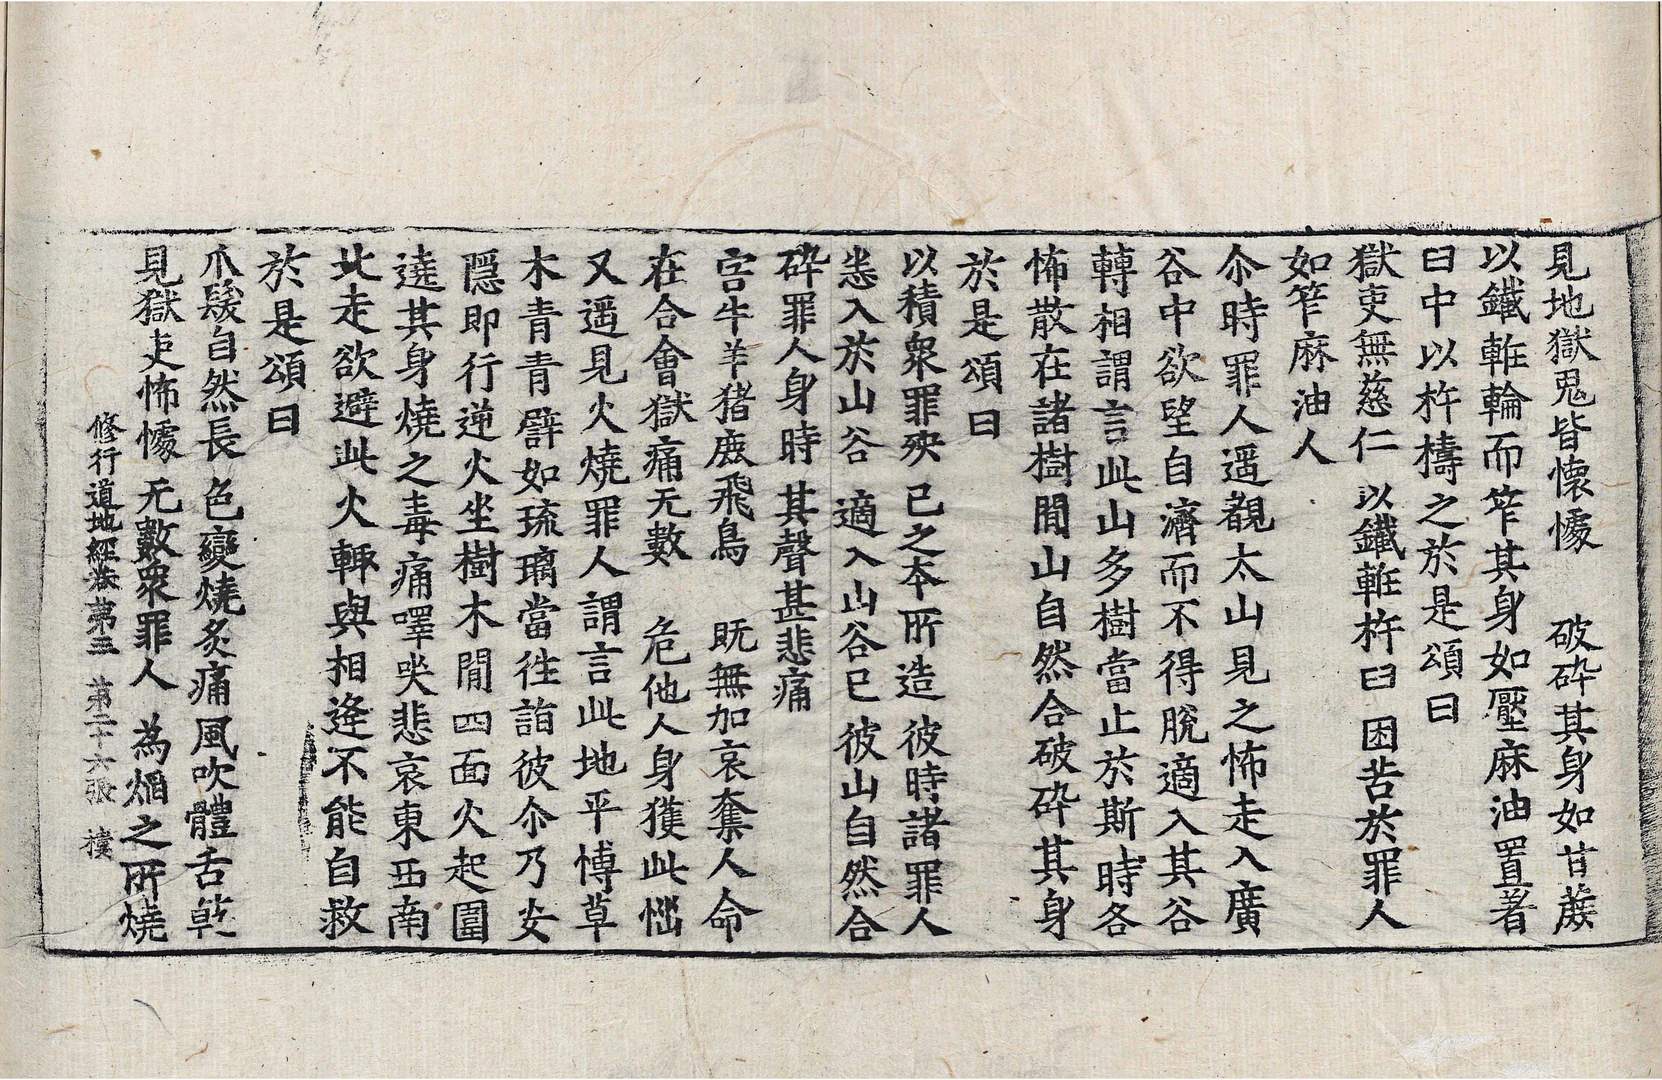 見地獄鬼皆懷懅　破碎其身如甘蔗
以鐵輂輪而笮其身如壓麻油置著
臼中以杵擣之於是頌曰
獄吏無慈仁　以鐵輂杵臼　困苦於罪人
如笮麻油人
尒時罪人遥覩太山見之怖走入廣
谷中欲望自濟而不得脫適入其谷
轉相謂言此山多樹當止於斯時各
怖散在諸樹閒山自然合破碎其身
於是頌曰
以積衆罪殃　已之本所造　彼時諸罪人
悉入於山谷　適入山谷已　彼山自然合
碎罪人身時　其聲甚悲痛
害牛羊猪鹿飛鳥　既無加哀奪人命
在合會獄痛无數　危他人身獲此惱
又遥見火燒罪人謂言此地平博草
木青青譬如琉璃當往詣彼尒乃安
隱即行逆火坐樹木閒四面火起圍
遶其身燒之毒痛嘷哭悲哀東西南
北走欲避此火輙與相逢不能自救
於是頌曰
爪髮自然長　色變燒炙痛　風吹體舌乾
見獄吏怖懅　无數衆罪人　為焰之所燒
修行道地經卷第三　第二十六張　樸